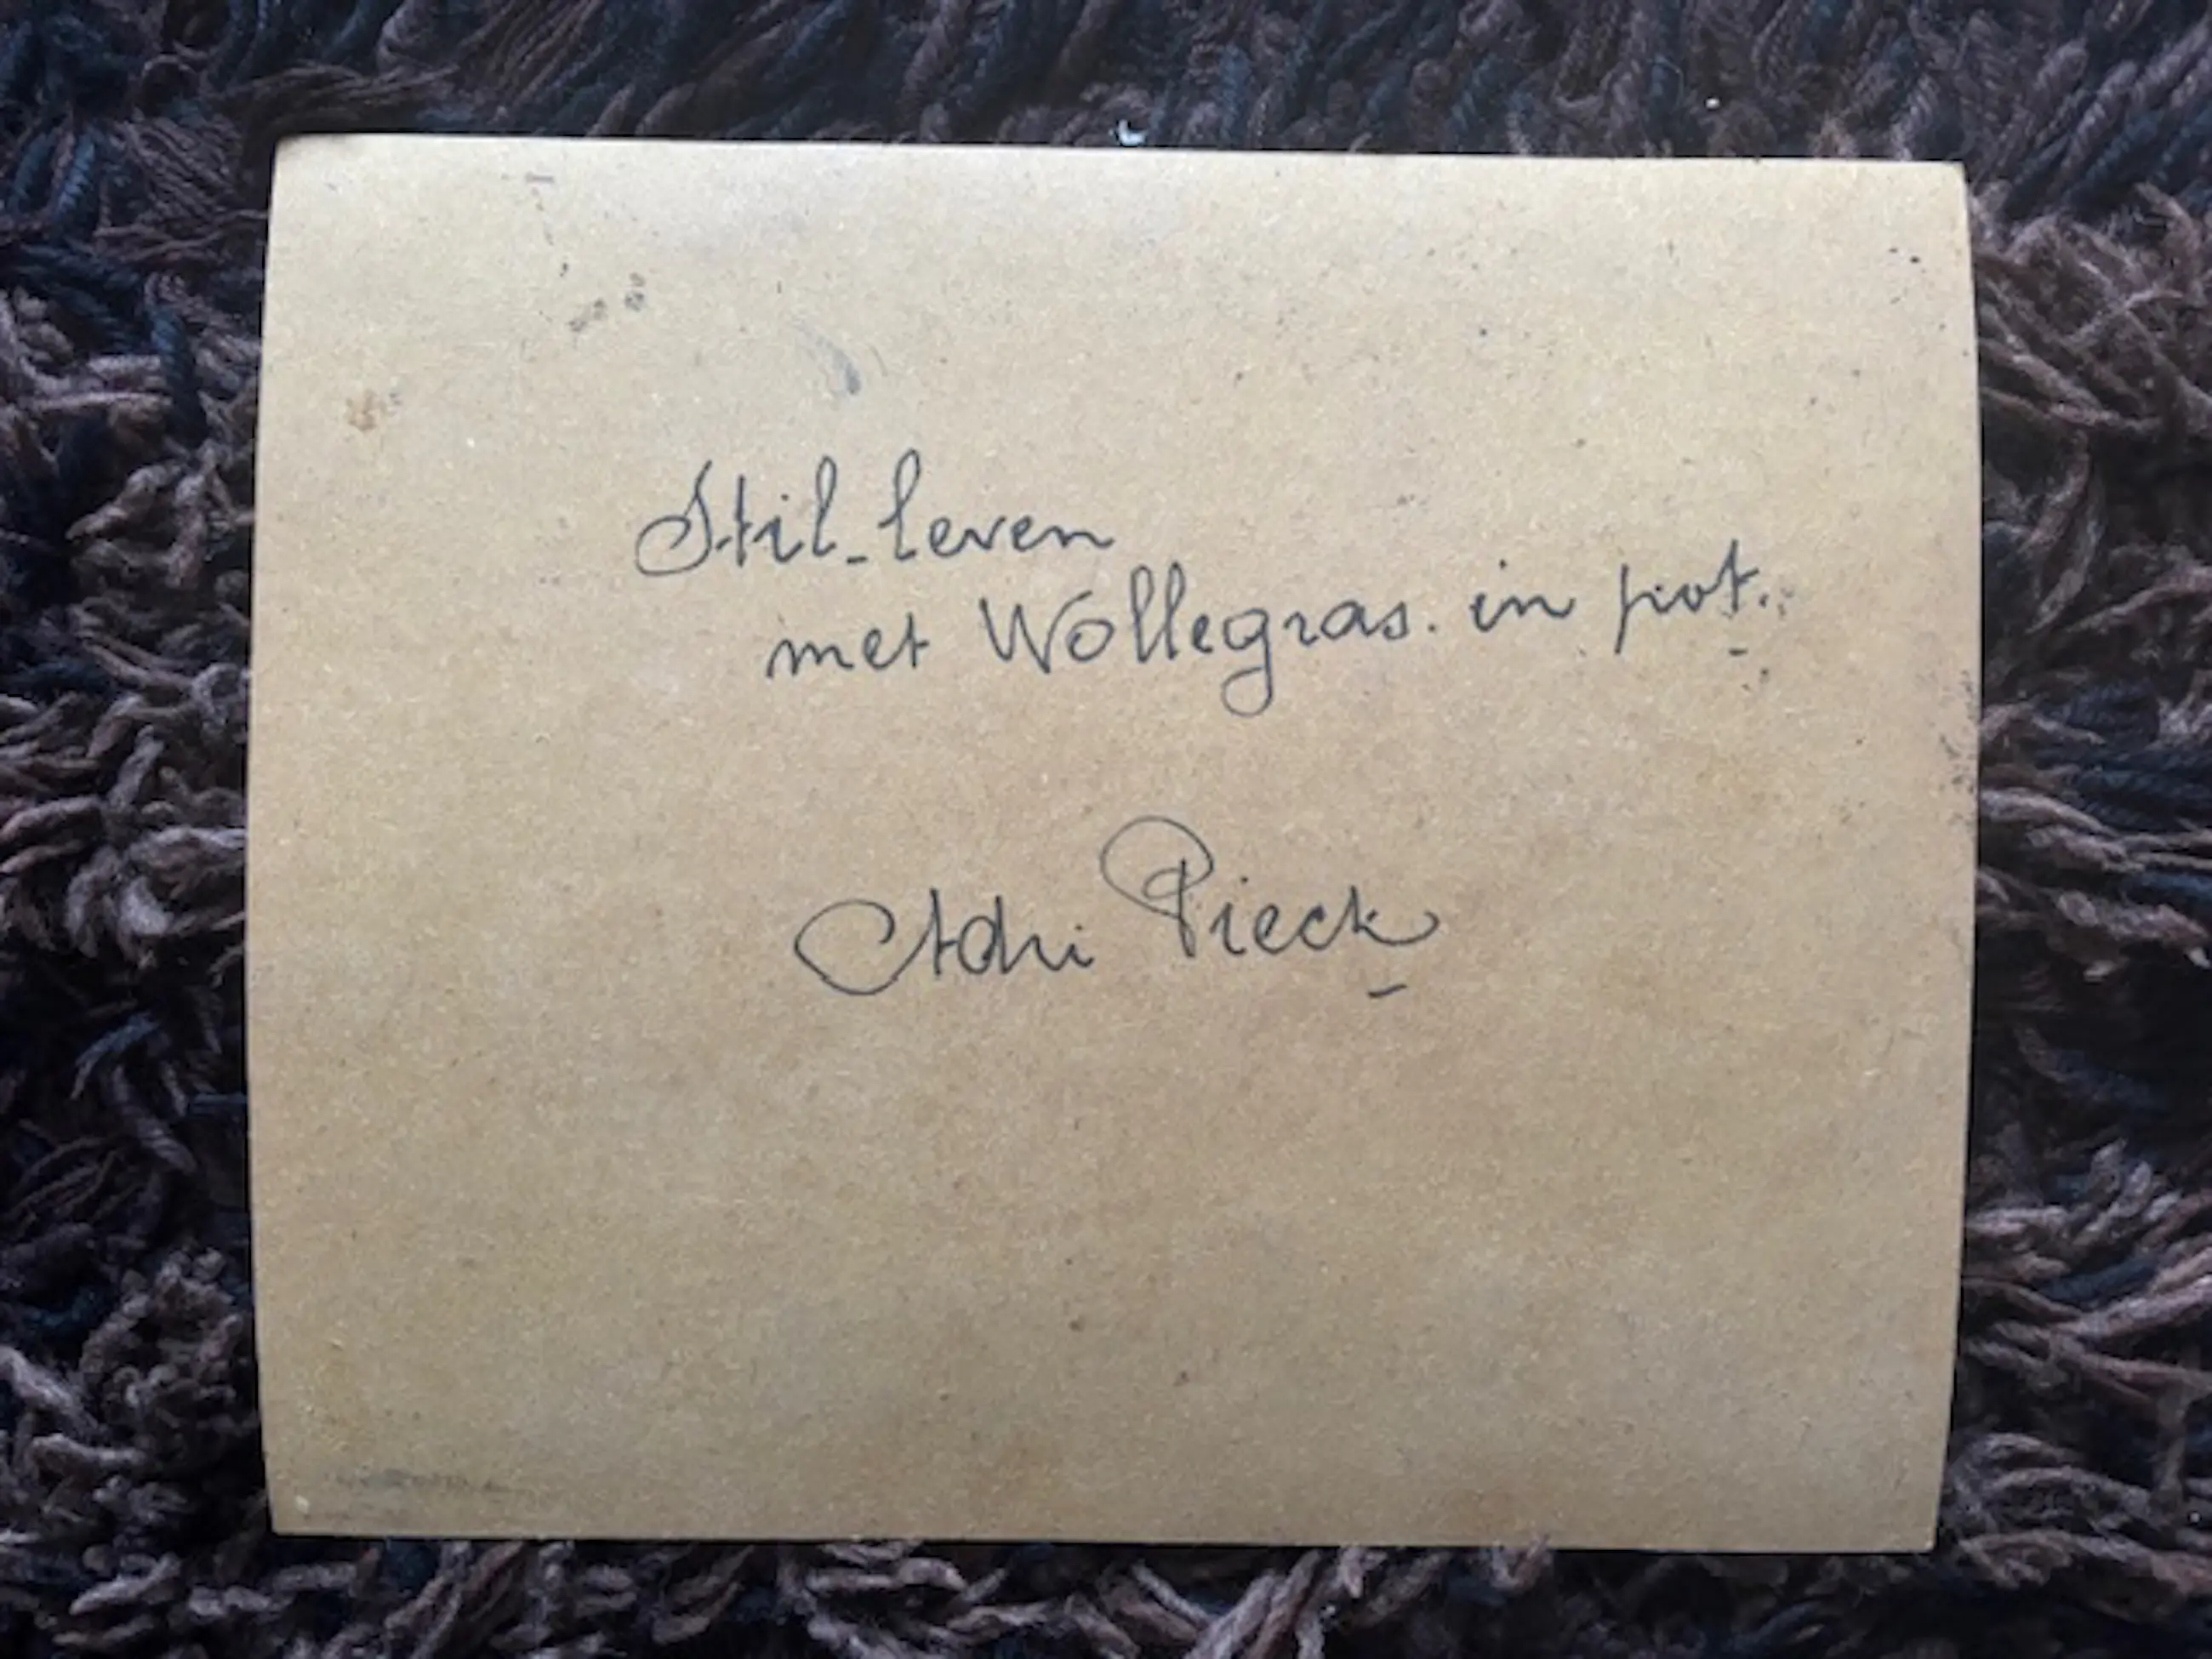 Stil-leven
met Wollegras. in pot.
Adri Pieck